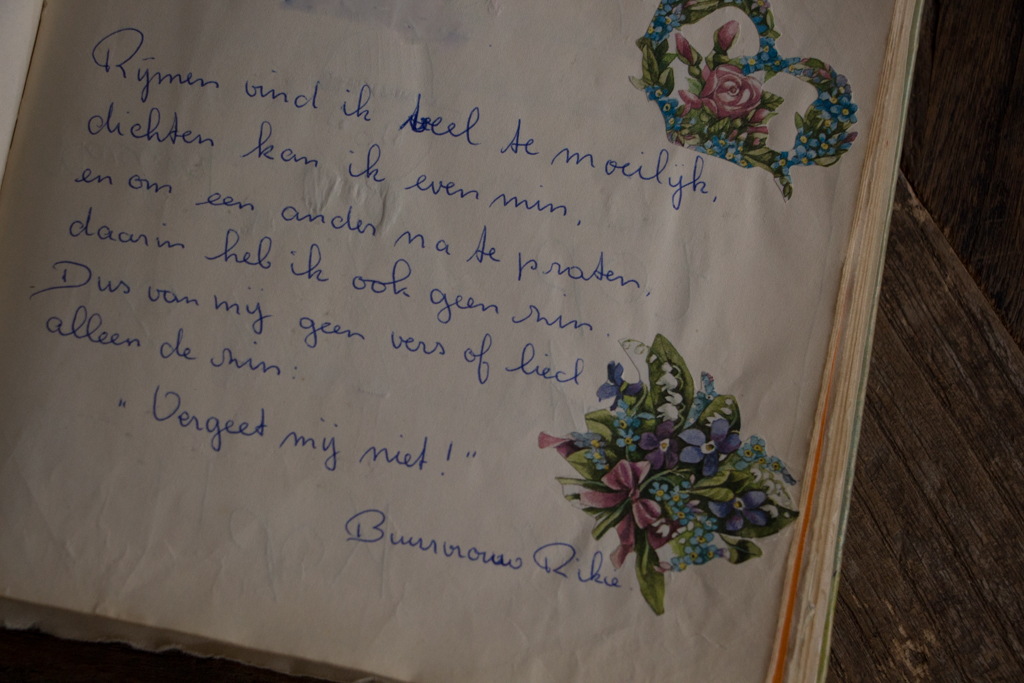 Rijmen vind ik veel te moeilijk,
dichten kan ik even min,
en om een ander na te praten,
daarin heb ik ook geen zin.
Dus van mij geen vers of lied
alleen de zin:
"Vergeet mij niet!"
Buurvrouw Rikie.